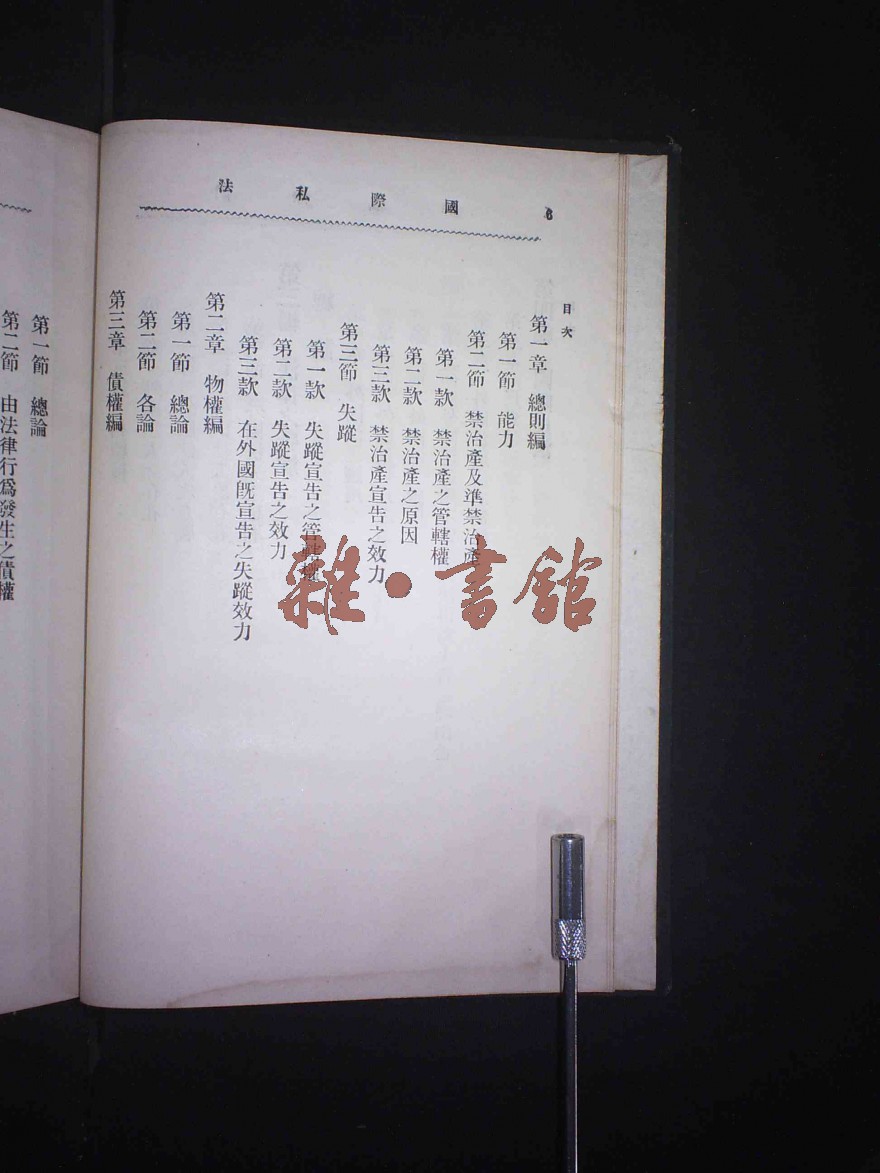 國際私法
6
目次
第一章 總則編
第一節 能力
第二節 禁治產及準禁治產
第一款 禁治產之管轄權
第二款 禁治產之原因
第三款 禁治產宣告之效力
第三節 失蹤
第一款 失蹤宣告之管轄權
第二款 失蹤宣告之效力
第三款 在外國旣宣告之失蹤效力
第二章 物權編
第一節 總論
第二節 各論
第三章 債權編
第一節 總論
第二節 由法律行爲發生之債權
雜·書館